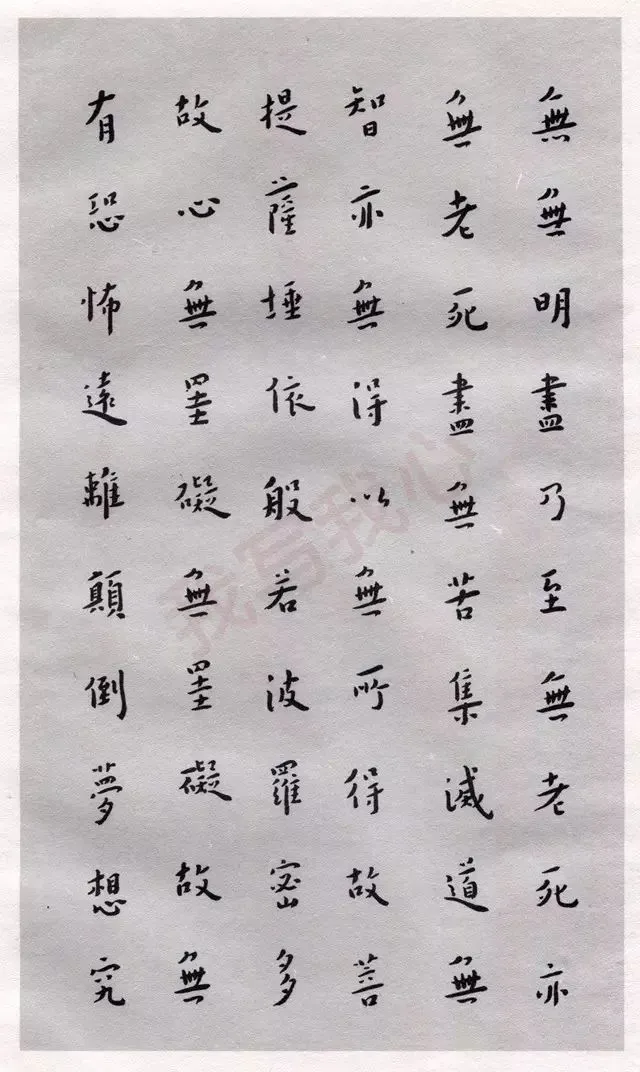 無無明盡乃至無老死亦
無老死盡無苦集滅道無
智亦無得以無所得故菩
提薩埵依般若波羅密多
故心無罣礙無罣礙故無
有恐怖遠離顛倒夢想究
我写我心